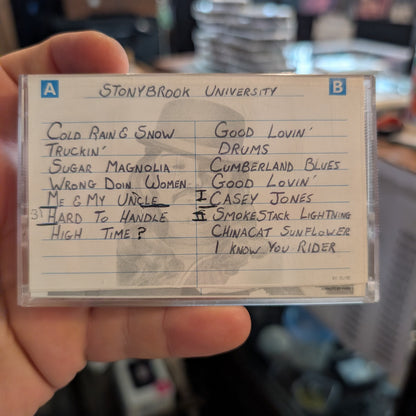 A STONYBROOK UNIVERSITY B
COLD RAIN & SNOW
TRUCKIN'
SUGAR MAGNOLIA
WRONG DOIN WOMEN
ME & MY UNCLE
31 HARD TO HANDLE
HIGH TIME?
GOOD LOVIN'
DRUMS
CUMBERLAND BLUES
GOOD LOVIN'
I CASEY JONES
II SMOKESTACK LIGHTNING
CHINACAT SUNFLOWER
I KNOW YOU RIDER